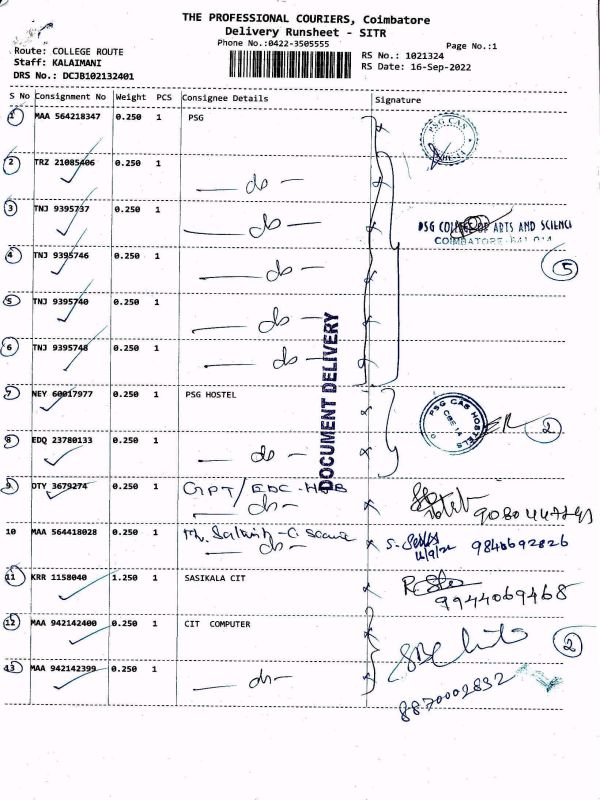 THE PROFESSIONAL COURIERS, Coimbatore
Delivery Runsheet - SITR
Phone No.:0422-3505555
Page No.:1
Route: COLLEGE ROUTE
Staff: KALAIMANI
DRS No.: DCJB102132401
RS No.: 1021324
RS Date: 16-Sep-2022
S No Consignment No Weight PCS Consignee Details Signature
1 MAA 564218347 0.250 1 PSG
PSG CAS
2 TRZ 21085406 0.250 1
do
3 TNJ 9395737 0.250 1
do
PSG COLLEGE OF ARTS AND SCIENCE
COIMBATORE-641 014
4 TNJ 9395746 0.250 1
do
5
5 TNJ 9395740 0.250 1
do
6 TNJ 9395748 0.250 1
do
DOCUMENT DELIVERY
7 NEY 60017977 0.250 1 PSG HOSTEL
PSG CAS HOSTELS
CBE 14
2
8 EDQ 23780133 0.250 1
do
9 DTY 3679274 0.250 1 GPT/EDC-HUB
do
10 MAA 564418028 0.250 1
do
9840692826
11 KRR 1158040 1.250 1 SASIKALA CIT
9944069468
12 MAA 942142400 0.250 1 CIT COMPUTER
2
13 MAA 942142399 0.250 1
do
8870002832